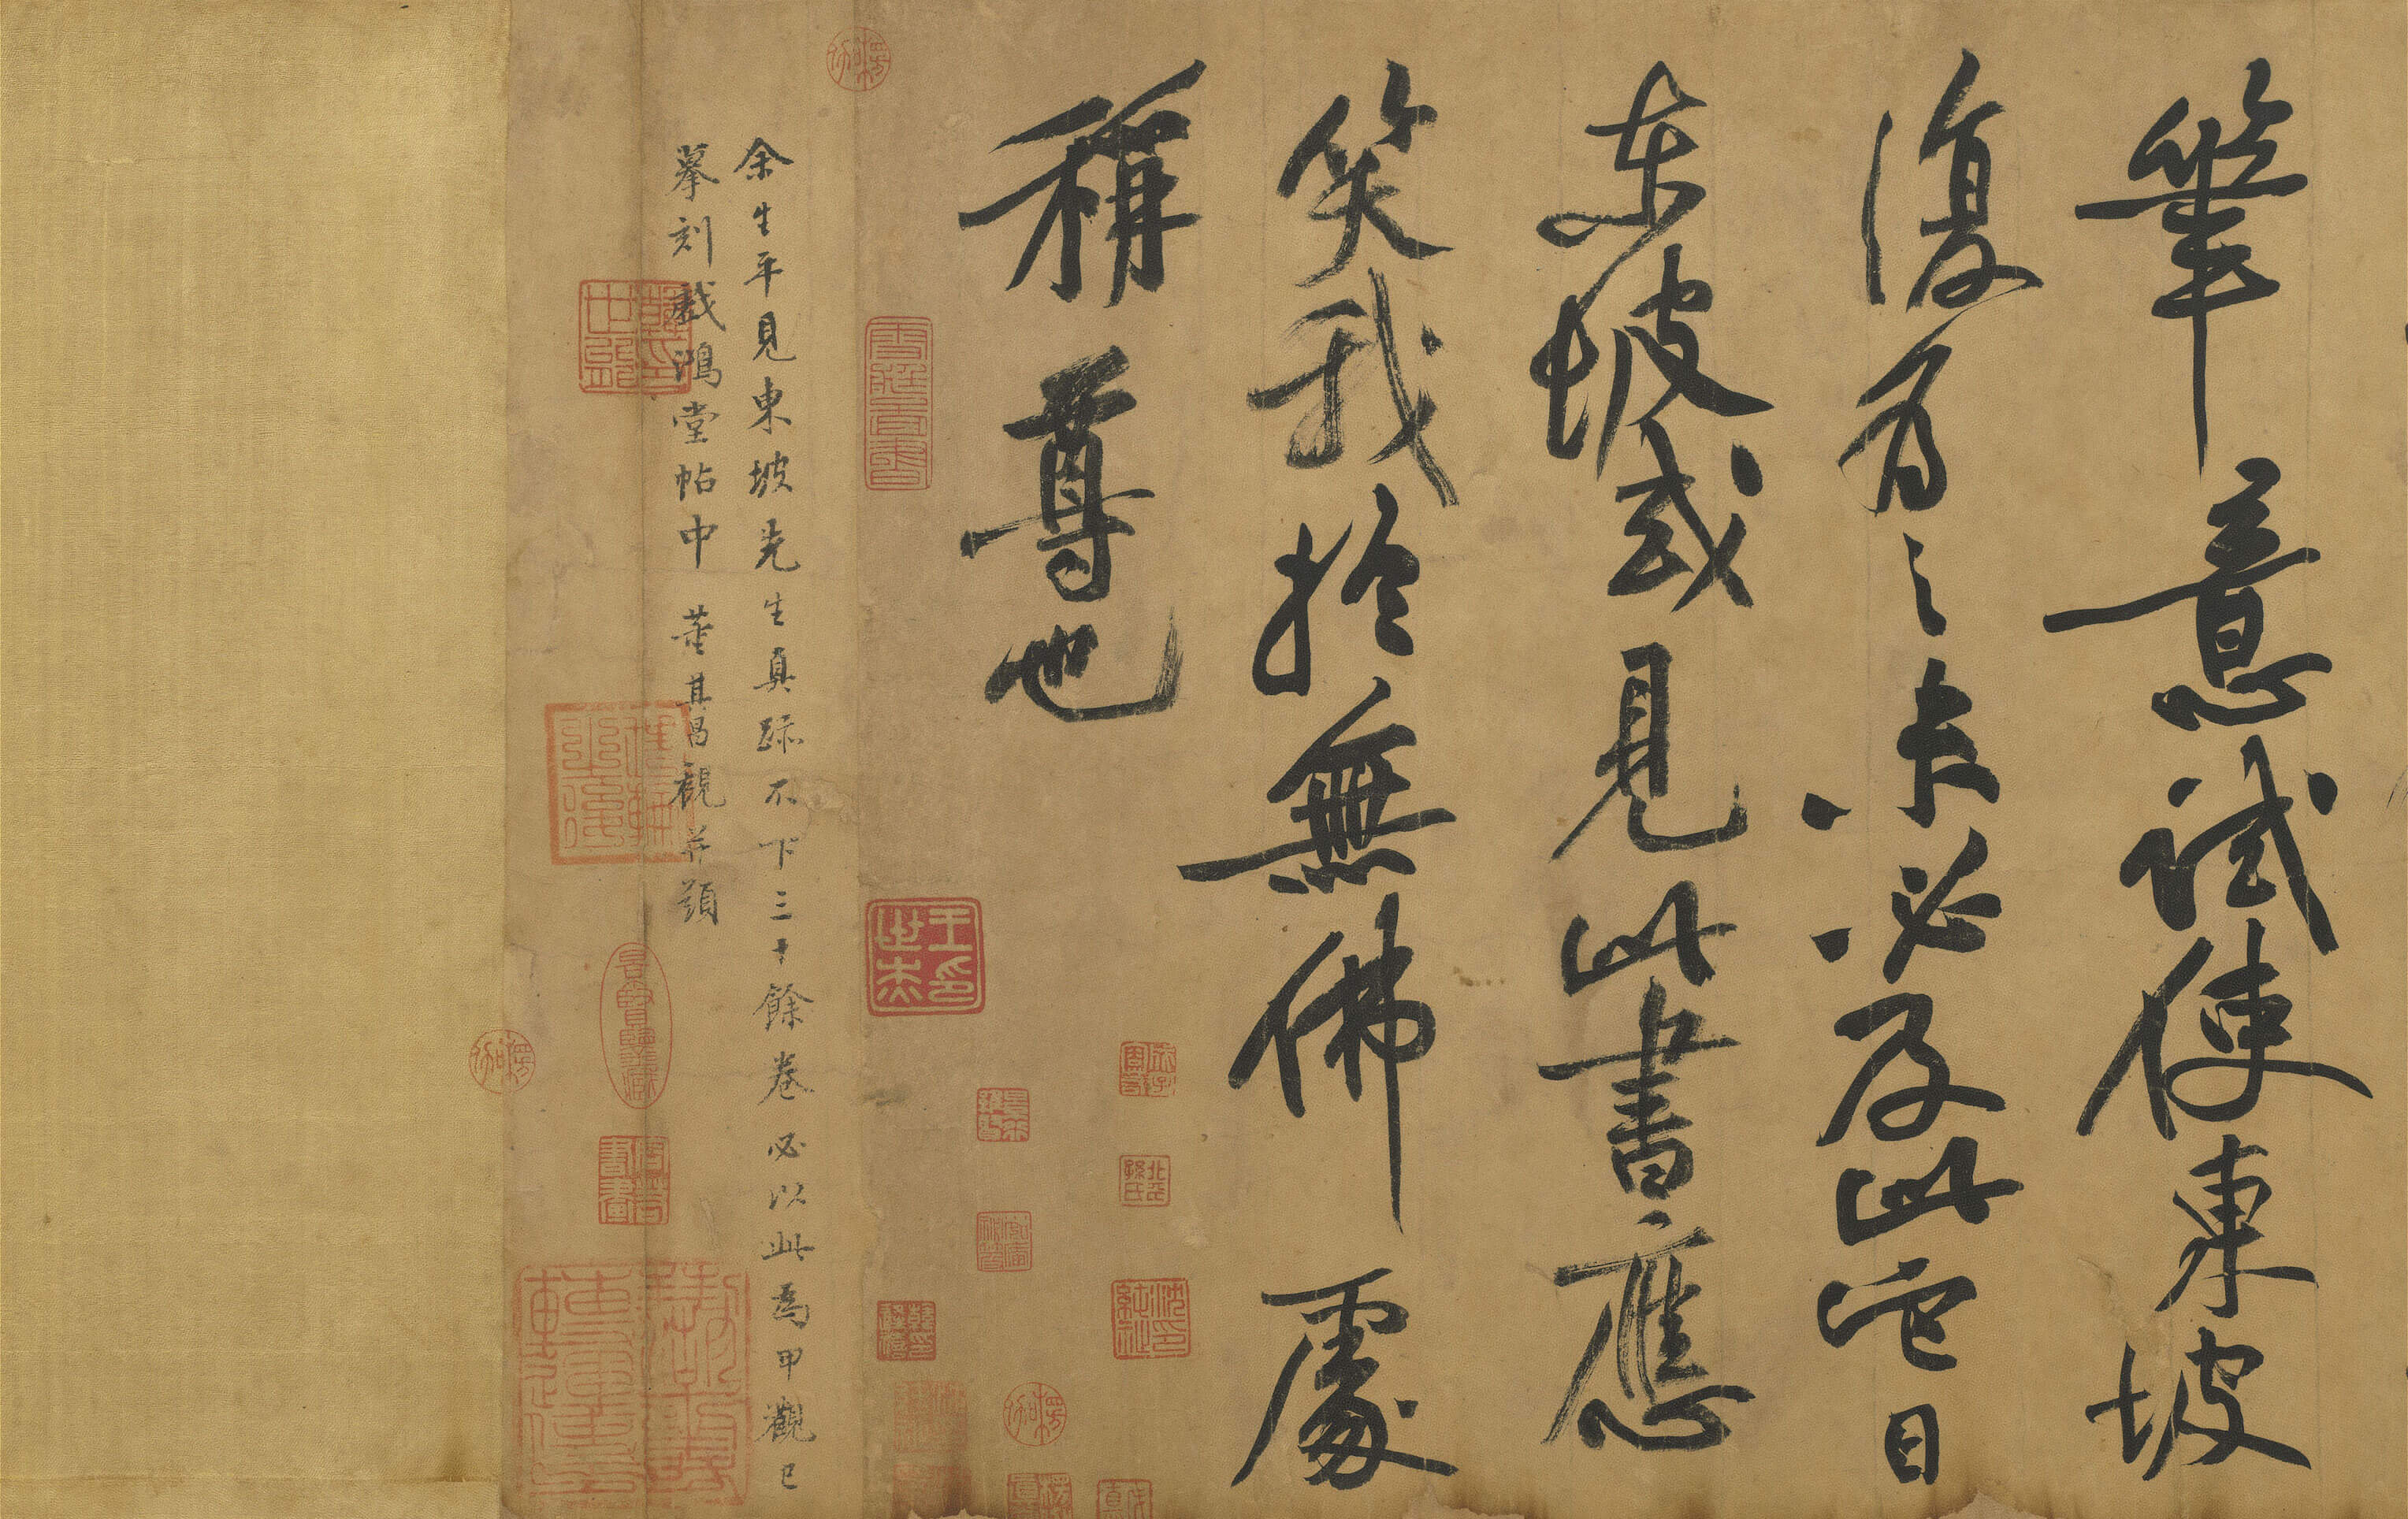 筆意試使東坡
復為之未必及此它日
東坡或見此書應
笑我於無佛處
稱尊也
余生平見東坡先生真跡不下三十餘卷必以此為甲觀已
摹刻戲鴻堂帖中 董其昌觀並題